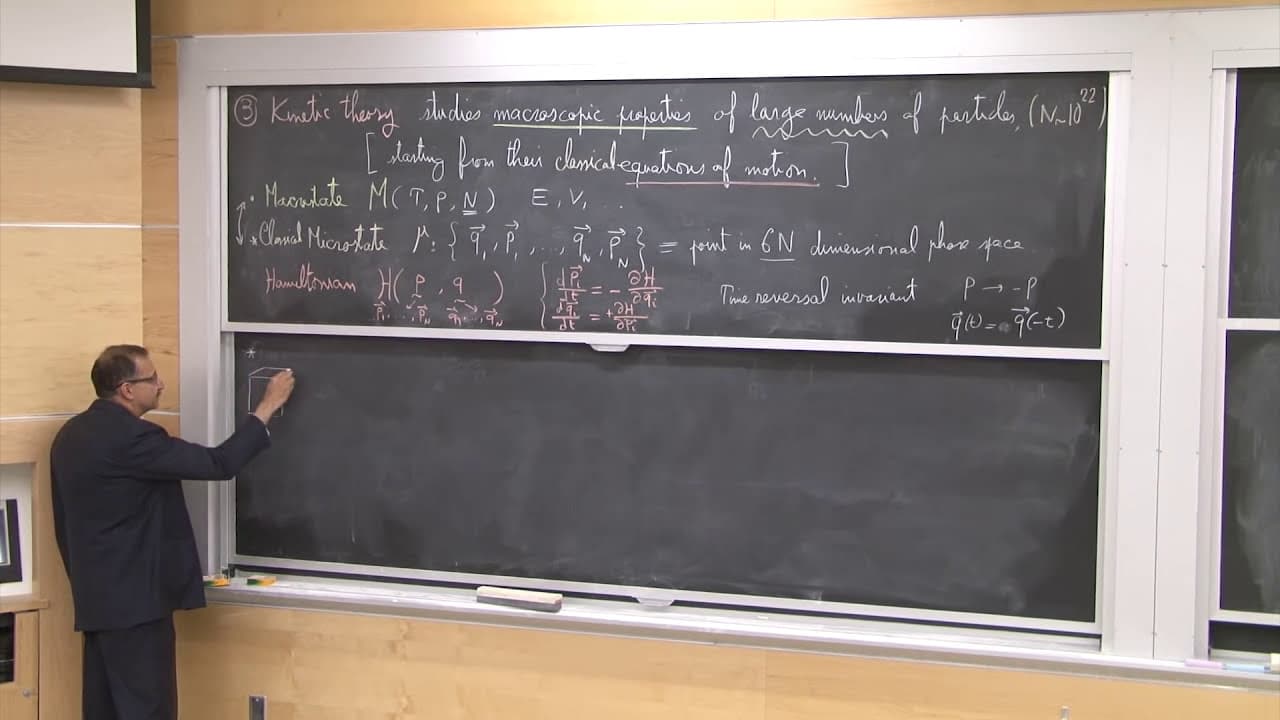 ③ Kinetic theory studies macroscopic properties of large numbers of particles, (N~10²²)
[ starting from their classical equations of motion. ]
• Macrostate M(T, P, N) E, V, ...
* Classical Microstate μ: { q⃗₁, p⃗₁, ..., q⃗_N, p⃗_N } = point in 6N dimensional phase space
Hamiltonian H( p , q ) { dp⃗ᵢ/dt = - ∂H/∂q⃗ᵢ Time reversal invariant p → -p
p⃗₁, ..., p⃗_N q⃗₁, ..., q⃗_N dq⃗ᵢ/dt = + ∂H/∂p⃗ᵢ q⃗(t) = q⃗(-t)
*